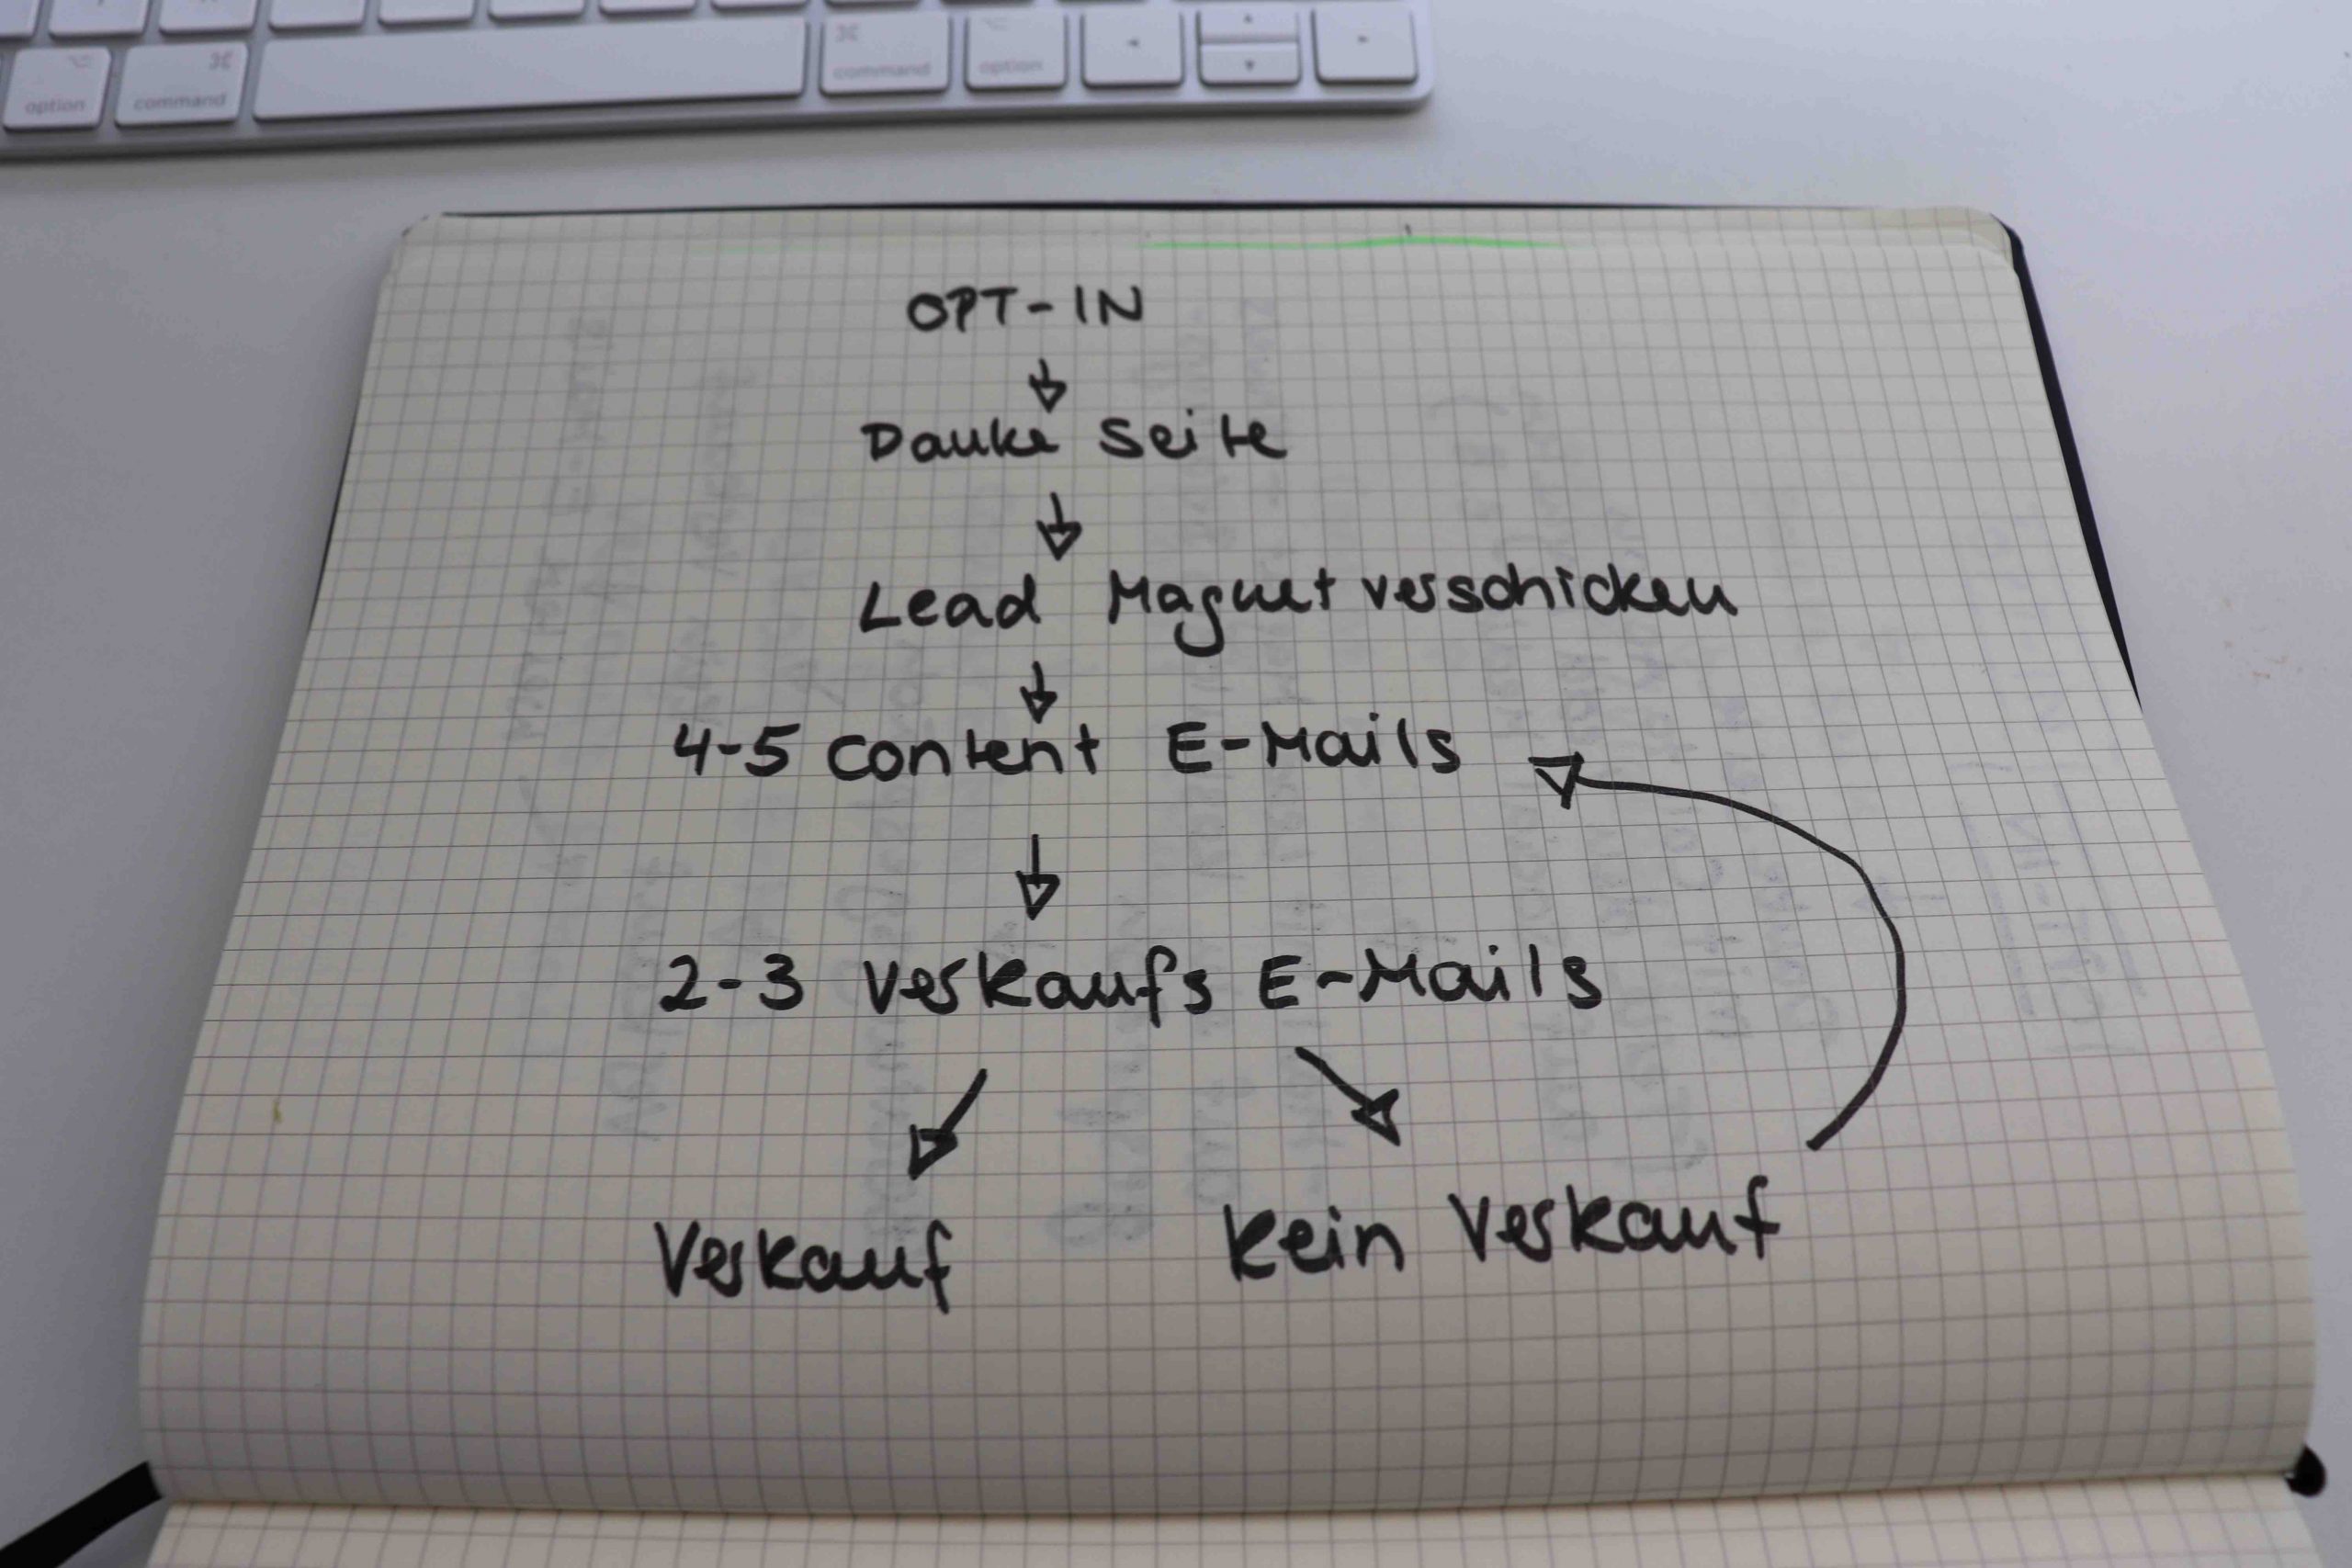 ⌥ option
⌘ command
⌘ command
⌥ option
OPT-IN
Danke Seite
Lead Magnet verschicken
4-5 Content E-Mails
2-3 Verkaufs E-Mails
Verkauf
kein Verkauf